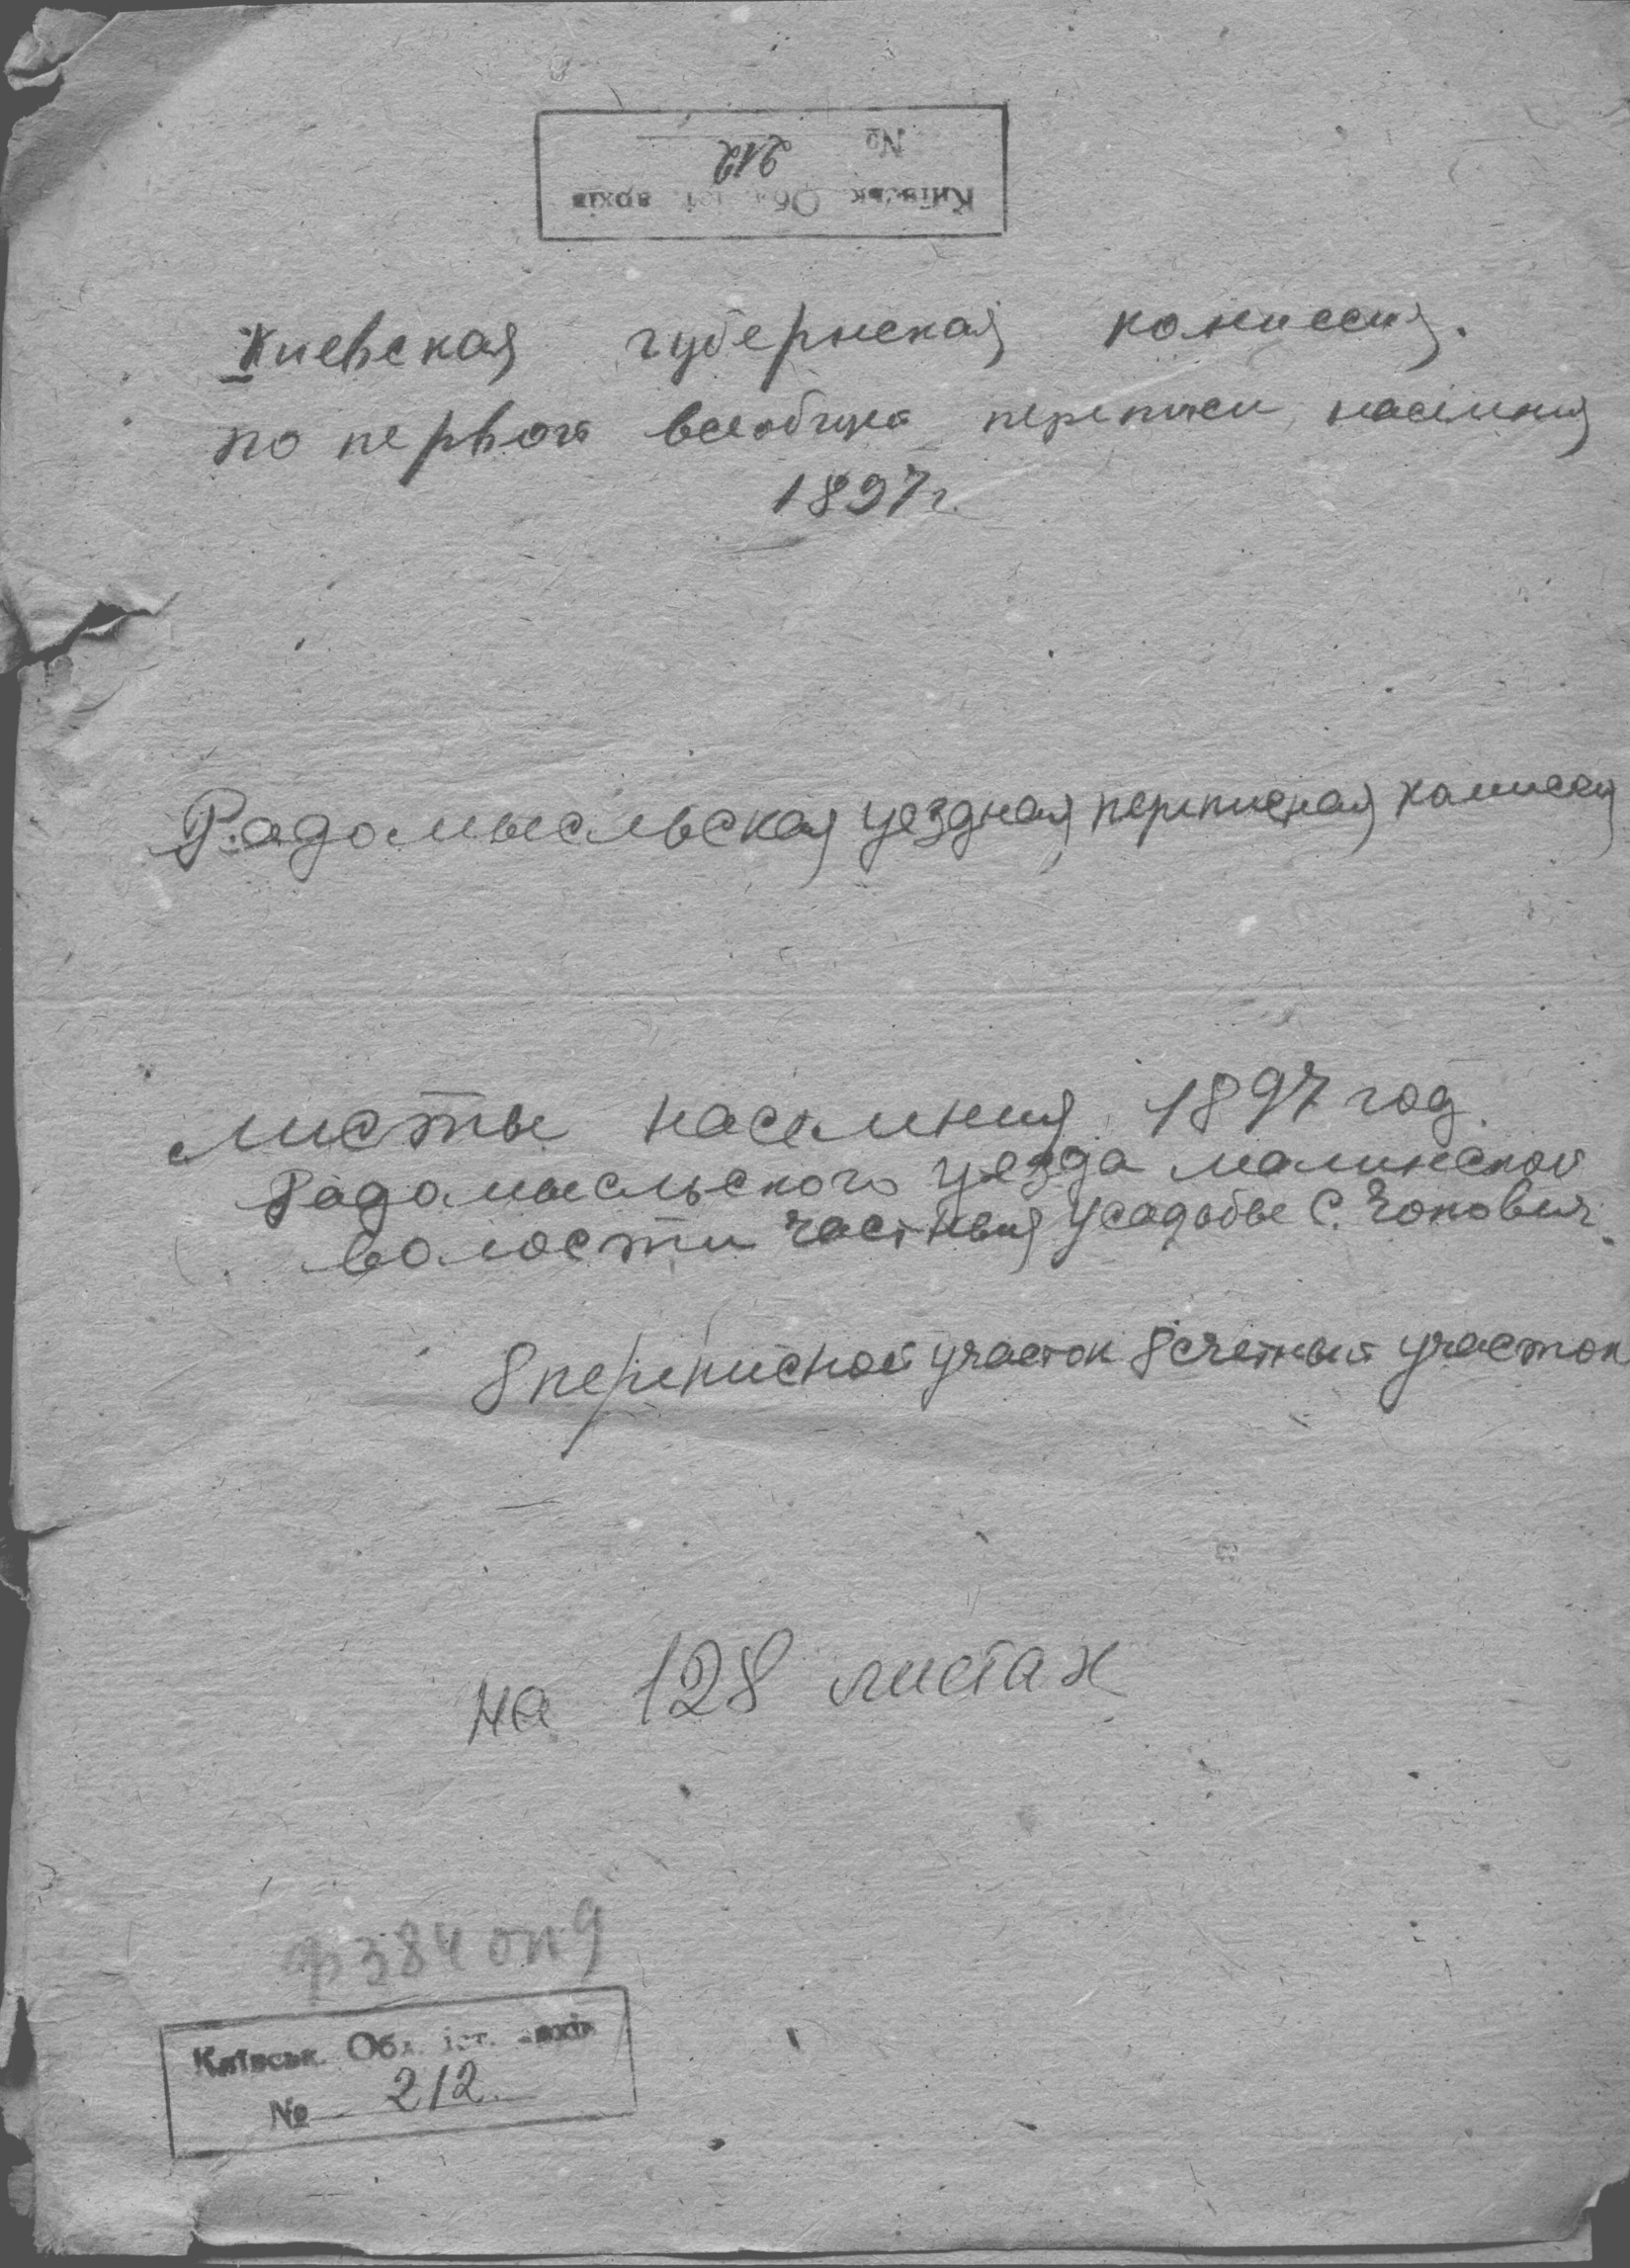 Київськ. Обл. іст. архів
№ 212
Киевская губернская комиссия.
по первой всеобщей переписи населения
1897 г.
Радомысльская уездная переписная комиссия
листы населения 1897 год
Радомысльского уезда малинской
волости частныя усадьбы С. Чопович.
8 переписной участок 8 счетный участок
на 128 листах
ф 384 оп 9
Київськ. Обл. іст. архів
№ 212.